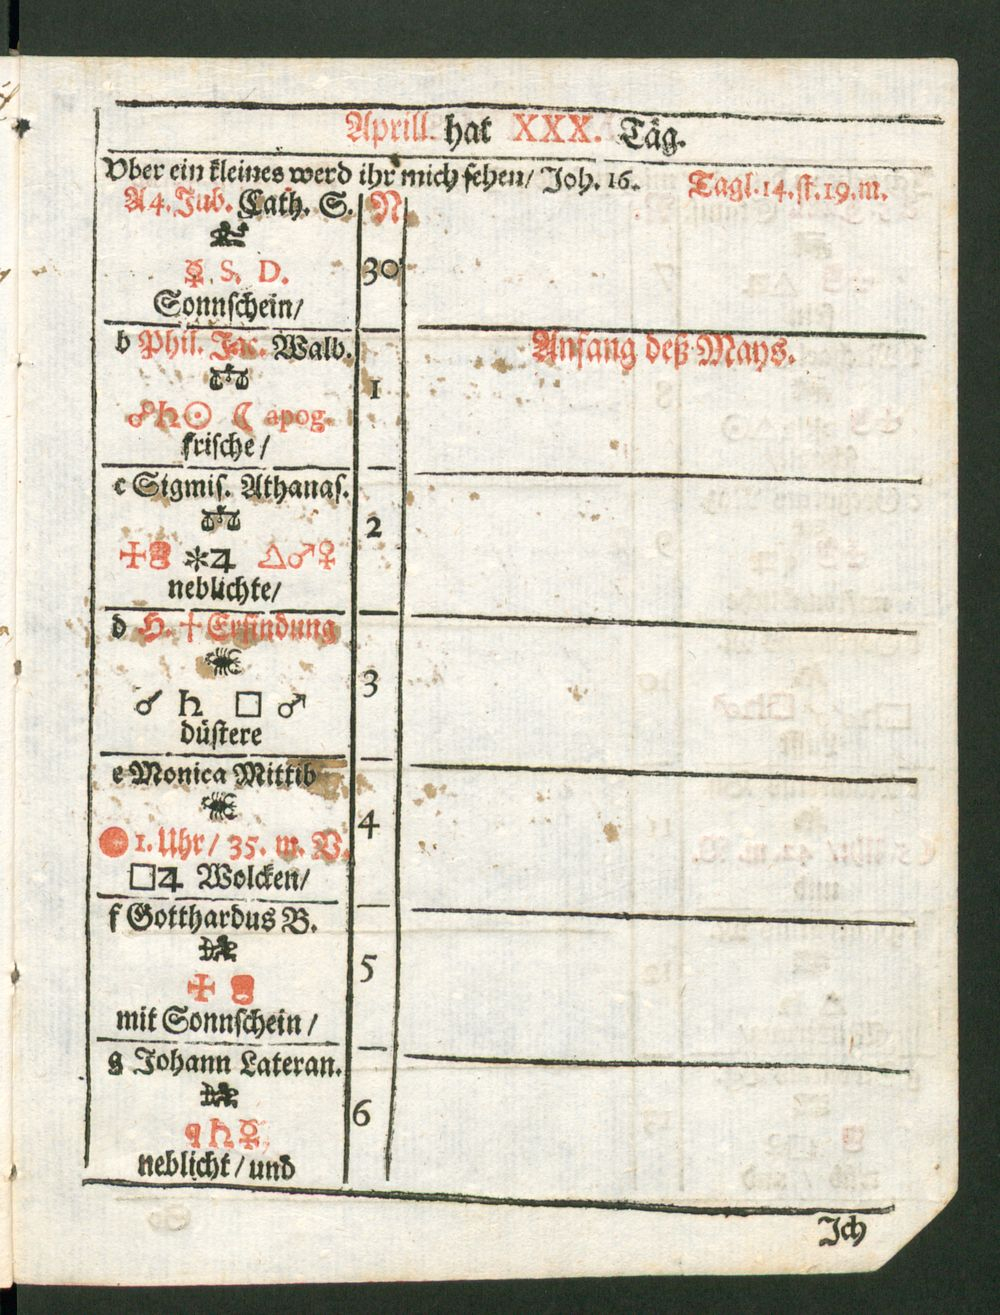 Aprill. hat XXX. Täg.
Vber ein kleines werd ihr mich sehen/ Joh. 16. Tagl. 14. st. 19. m.
A 4. Jub. Cath. S. N
☿. S. D. 30
Sonnschein/
b Phil. Jac. Walb. Anfang deß Mays.
1
☍♄☉ ☾ apog.
frische/
c Sigmis. Athanas.
2
✠ ✱♃ △♂♀
neblichte/
d H. ✝ Erfindung
3
☌ ♄ □ ♂
düstere
e Monica Mittib
4
1. Uhr/ 35. m. V.
□♃ Wolcken/
f Gotthardus B.
5
✠
mit Sonnschein/
g Johann Lateran.
6
♄☿
neblicht/ und
Ich